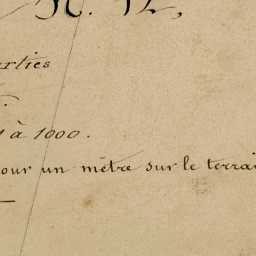 N. 12,
arties
1 à 1000.
our un mètre sur le terrai